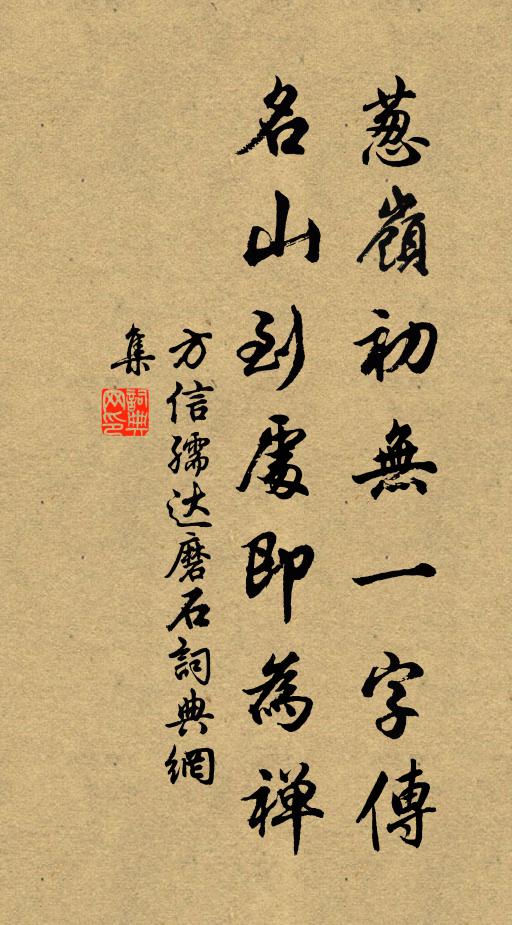 葱嶺初無一字傳
名山到處即為禅
方信孺达磨石詞典網
集
詞典
网印